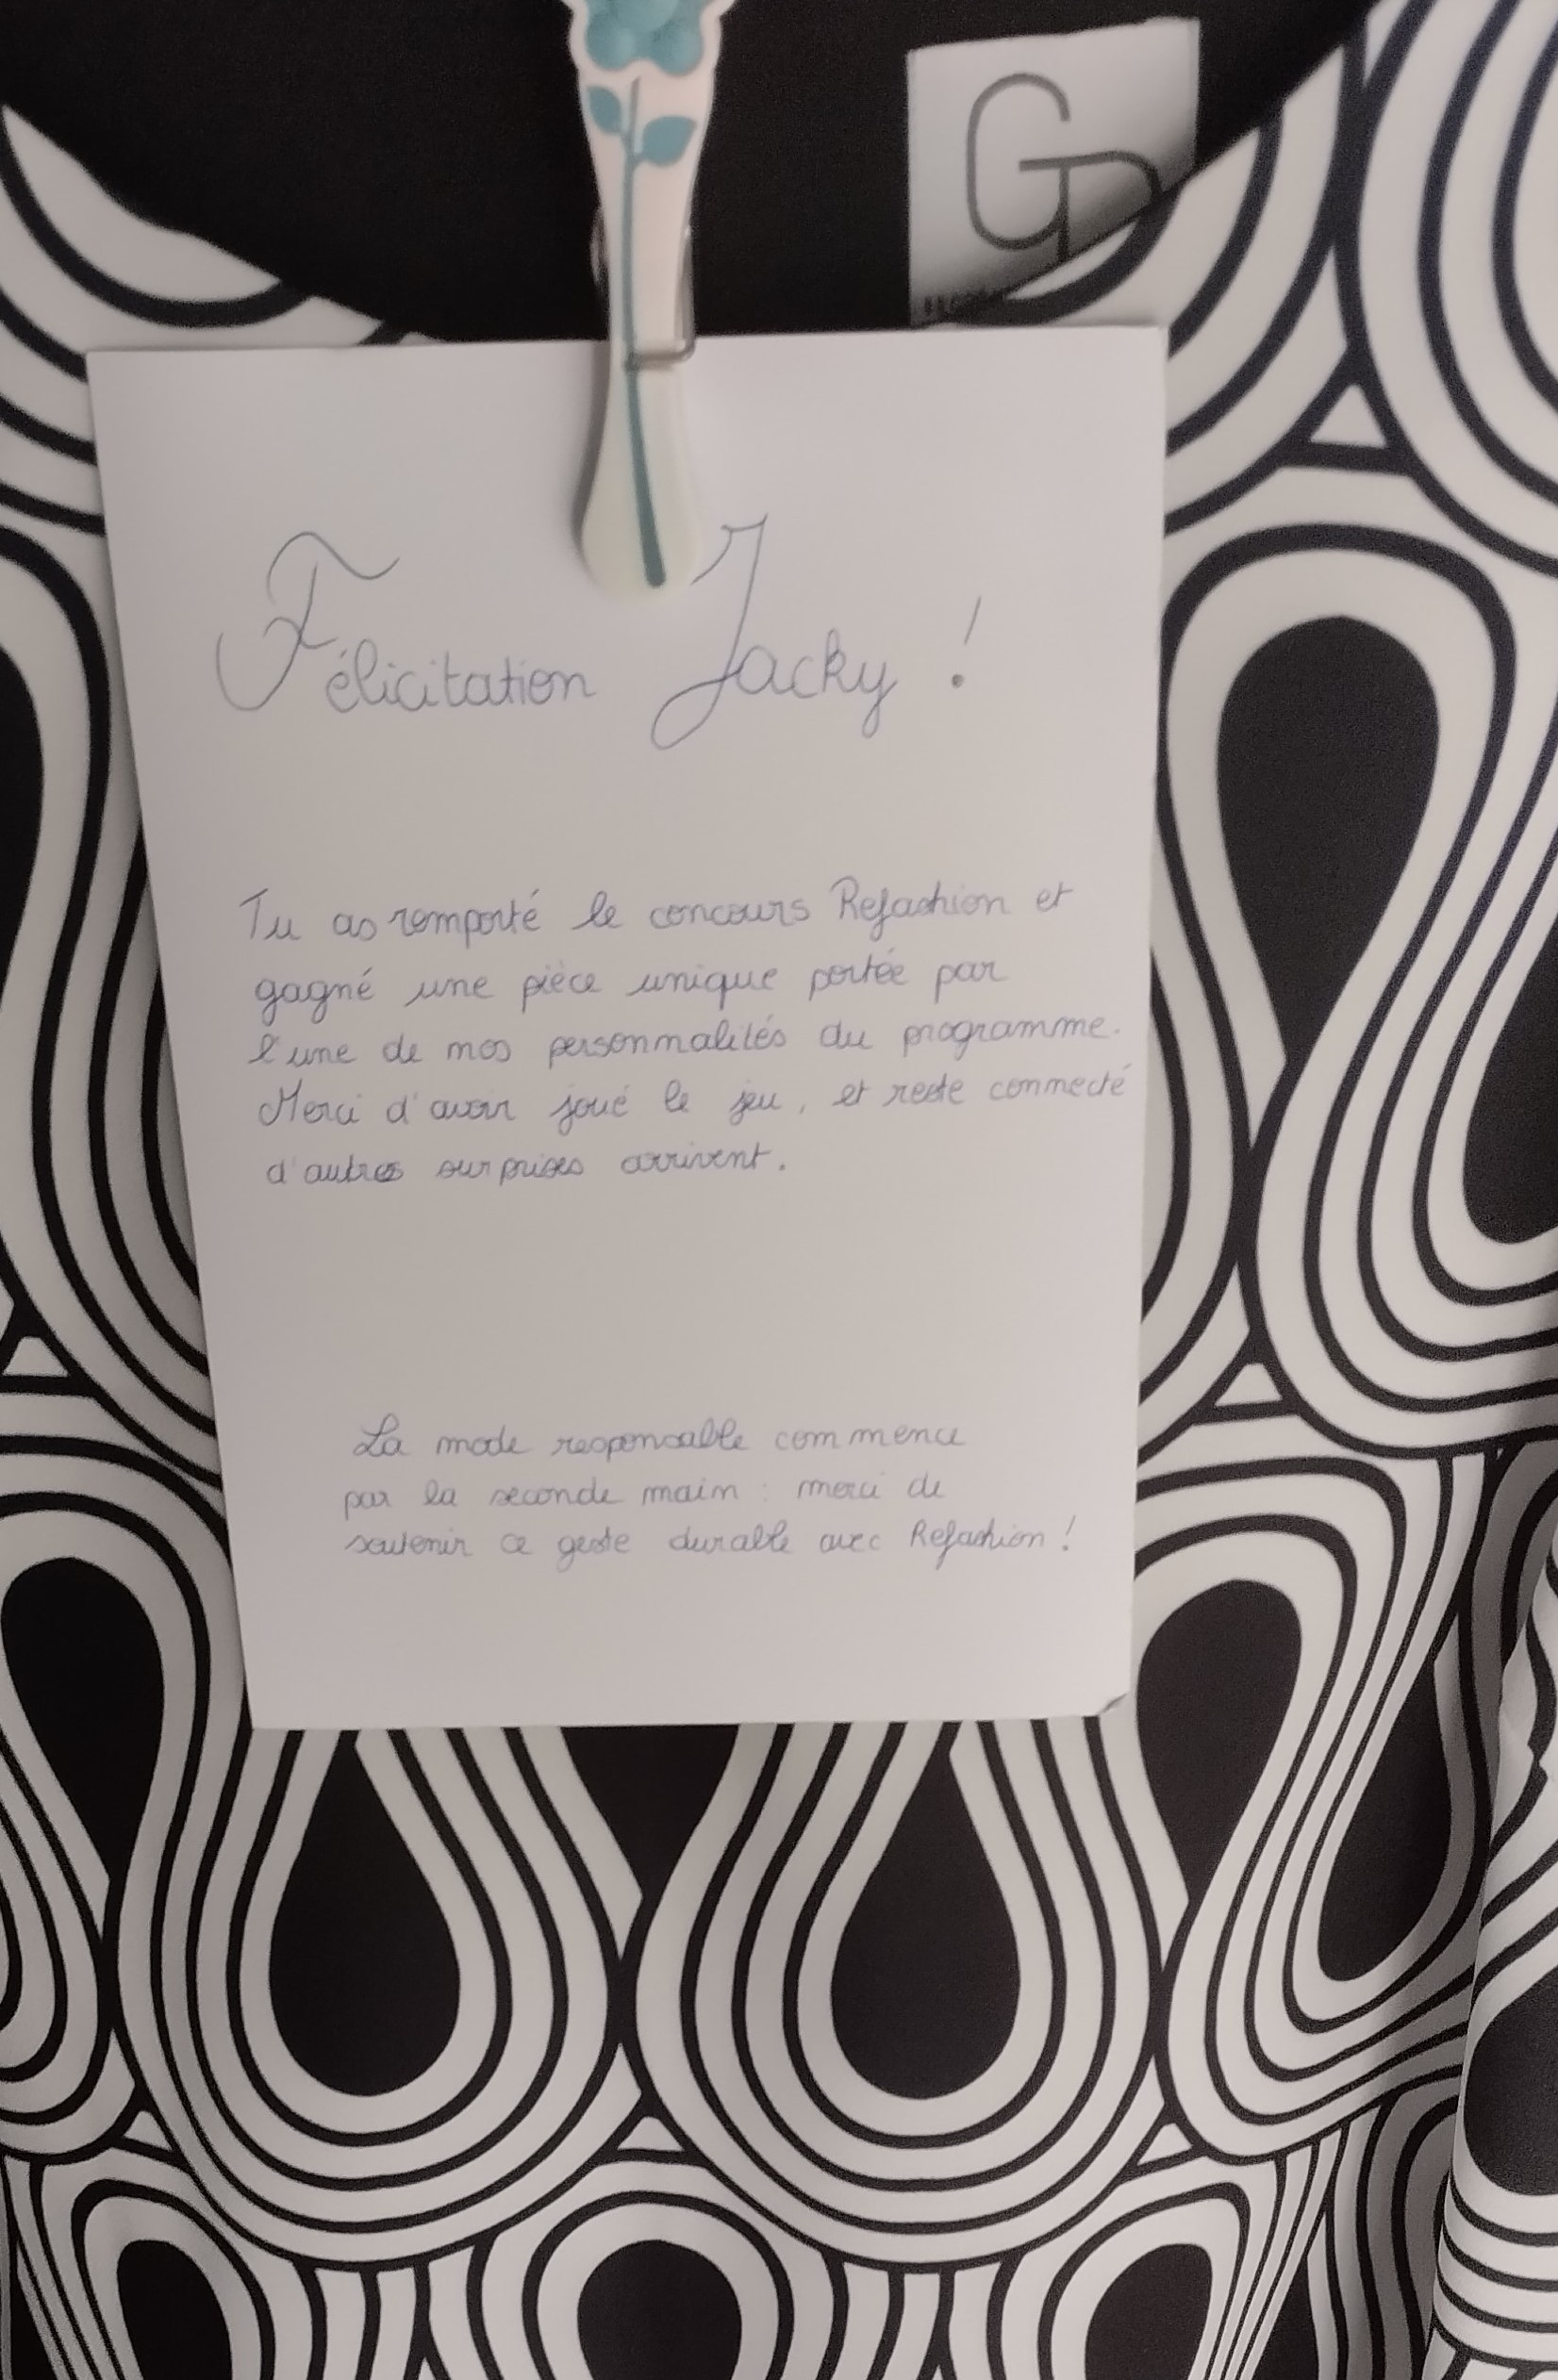 GD
Félicitation Jacky !
Tu as remporté le concours Refashion et
gagné une pièce unique portée par
l'une de mos personmalités du programme.
Merci d'avoir joué le jeu, et reste connecté
d'autres surprises arrivent.
La mode responsable commence
par la seconde main : merci de
soutenir ce geste durable avec Refashion !